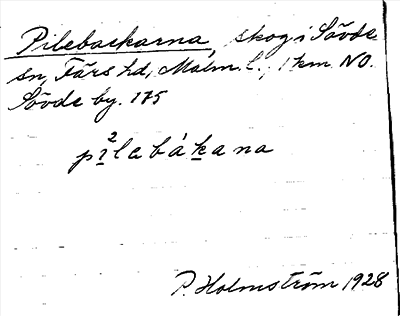 Pilebackarna, skog i Sövde
sn, Färs hd, Malm. l., 1 km. NO.
Sövde by. 175
pi²labákana
P. Holmström 1928